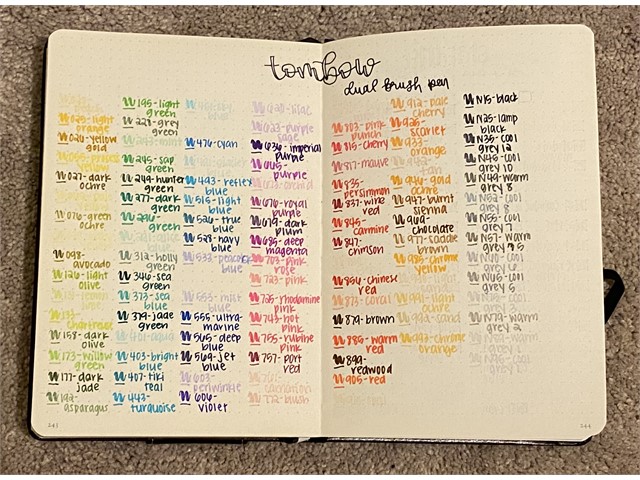 tombow
dual brush pen
025-light
orange
026-yellow
gold
027-dark
ochre
076-green
ochre
098-
avocado
126-light
olive
133-
chartreuse
158-dark
olive
173-willow
green
177-dark
jade
192-
asparagus
195-light
green
228-grey
green
245-sap
green
249-hunter
green
277-dark
green
296-
green
312-holly
green
346-sea
green
373-sea
blue
379-jade
green
401-aqua
403-bright
blue
407-tiki
teal
443-
turquoise
476-cyan
493-reflex
blue
515-light
blue
526-true
blue
528-navy
blue
533-peacock
blue
553-mist
purple
555-ultra-
marine
565-deep
blue
569-jet
blue
603-
periwinkle
606-
violet
620-lilac
623-purple
sage
636-imperial
purple
665-
purple
673-orchid
676-royal
purple
679-dark
plum
685-deep
magenta
703-pink
rose
723-pink
725-rhodamine
pink
743-hot
pink
755-rubine
pink
757-port
red
carnation
772-blush
803-pink
punch
815-cherry
817-mauve
835-
persimmon
837-wine
red
845-
carmine
847-
crimson
856-chinese
red
873-coral
879-brown
885-warm
red
899-
redwood
905-red
912-pale
cherry
925-
scarlet
933-
orange
946-gold
ochre
947-burnt
sienna
969-
chocolate
977-saddle
brown
985-chrome
yellow
991-light
ochre
992-sand
993-chrome
orange
N15-black
N25-lamp
black
N35-cool
grey 12
N45-cool
grey 10
N49-warm
grey 8
N52-cool
grey 8
N55-cool
grey 7
N57-warm
grey 5
N60-cool
grey 6
N65-cool
grey 5
N79-warm
grey 2
241
244